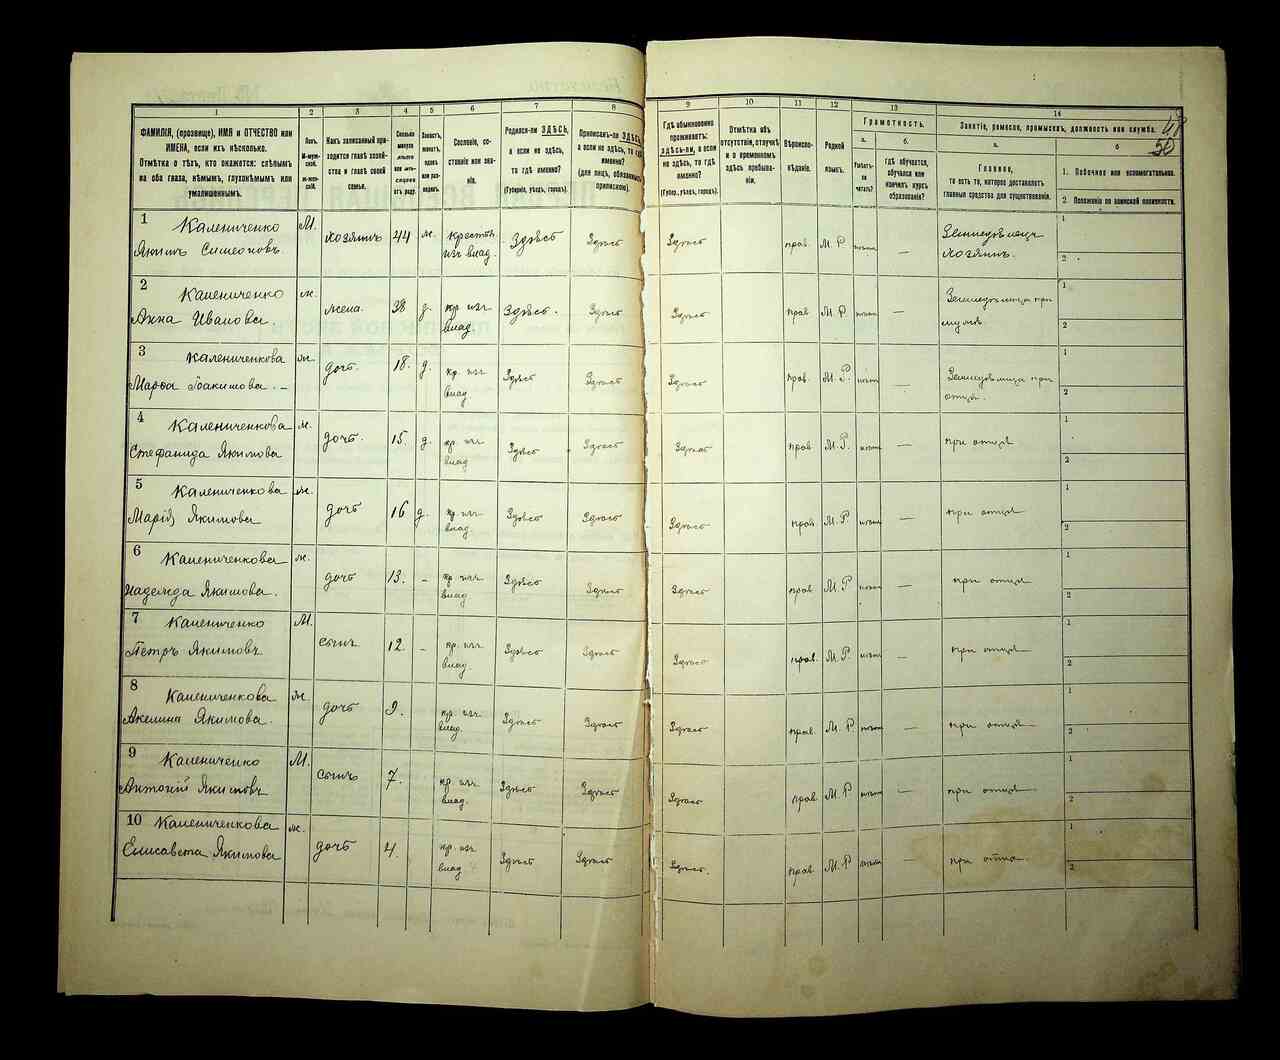 48
50
1
2
3
4
5
6
7
8
9
10
11
12
13
14
ФАМИЛІЯ, (прозвище), ИМЯ и ОТЧЕСТВО или
ИМЕНА, если ихъ нѣсколько.
Отмѣтка о тѣхъ, кто окажется: слѣпымъ
на оба глаза, нѣмымъ, глухонѣмымъ или
умалишеннымъ.
Полъ.
М-мужской.
ж-женскій.
Какъ записанный приходится главѣ хозяйства и главѣ своей семьи.
Сколько минуло лѣтъ или мѣсяцевъ отъ роду.
Холостъ, женатъ, вдовъ или разведенъ.
Сословіе, состояніе или званіе.
Родился-ли ЗДѢСЬ,
а если не здѣсь,
то гдѣ именно?
(Губернія, уѣздъ, городъ).
Приписанъ-ли ЗДѢСЬ,
а если не здѣсь, то гдѣ
именно?
(для лицъ, обязанныхъ
припискою).
Гдѣ обыкновенно
проживаетъ:
здѣсь-ли, а если
не здѣсь, то гдѣ
именно?
(Губер., уѣздъ, городъ).
Отмѣтка объ
отсутствіи, отлучкѣ
и о временномъ
здѣсь пребываніи.
Вѣроисповѣданіе.
Родной
языкъ.
Грамотность.
а.
Умѣетъ-ли
читать?
б.
гдѣ обучается,
обучался или
кончилъ курсъ
образованія?
Занятіе, ремесло, промыселъ, должность или служба.
а.
Главное,
то есть то, которое доставляетъ
главныя средства для существованія.
б
1. Побочное или вспомогательное.
2 Положеніе по воинской повинности.
1 Калениченко
Якимъ Симеоновъ М. хозяинъ 44 ж. крестьян. изъ влад. Здѣсь Здѣсь Здѣсь прав. М. Р. Земледѣлецъ хозяинъ. 1 2
2 Калениченко
Анна Иванова ж. жена 38 кр. изъ влад. Здѣсь. Здѣсь Здѣсь прав. М. Р. — 1 2
3 Калениченкова
Марѳа Іоакимова. ж. дочь. 18. д. кр. изъ влад. Здѣсь Здѣсь Здѣсь прав. М. Р. 1 2
4 Калениченкова
Стефанида Якимова ж. дочь. 15. д. кр. изъ влад Здѣсь Здѣсь Здѣсь прав М. Р. — при отцѣ 1 2
5 Калениченкова
Марія Якимова ж. дочь 16 д. кр. изъ влад. Здѣсь Здѣсь Здѣсь прав. М. Р — при отцѣ 1 2
6 Калениченкова
Надежда Якимова. ж. дочь 13. - кр. изъ влад Здѣсь Здѣсь Здѣсь прав М. Р — при отцѣ 1 2
7 Калениченко
Петръ Якимовъ М. сынъ 12. - кр. изъ влад. Здѣсь Здѣсь Здѣсь прав. М. Р. — при отцѣ 1 2
8 Калениченкова
Акелина Якимова. ж. дочь 9. кр. изъ влад. Здѣсь Здѣсь Здѣсь прав. М. Р — при отцѣ 1 2
9 Калениченко
Антоній Якимовъ М. сынъ 7. кр. изъ влад. Здѣсь Здѣсь Здѣсь прав М. Р — при отцѣ 1 2
10 Калениченкова
Елисавета Якимова ж. дочь 4. кр. изъ влад Здѣсь Здѣсь Здѣсь. прав М. Р — при отцѣ. 1 2